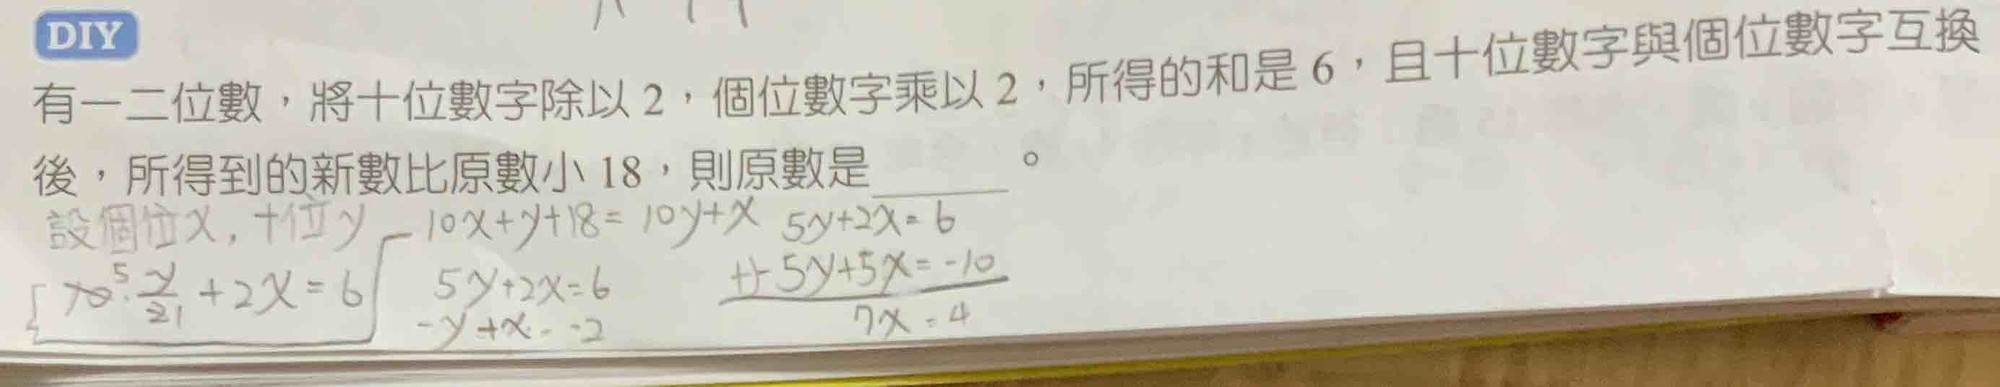 DIY
有一二位數，將十位數字除以 2，個位數字乘以 2，所得的和是 6，且十位數字與個位數字互換
後，所得到的新數比原數小 18，則原數是______。
設個位x，十位y 10x+y+18=10y+x 5y+2x=6
10⁵·y/2₁+2x=6 5y+2x=6 +)-5y+5x=-10
-y+x=-2 7x=4